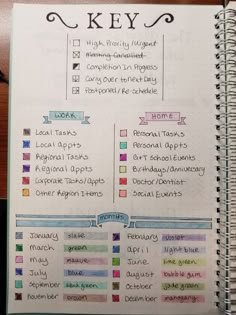 KEY
High Priority/Urgent
Meeting Cancelled
Completion In Progress
Carry Over to Next Day
Postponed/Re-schedule
WORK
Local Tasks
Local Appts
Regional Tasks
Regional Appts
Corporate Tasks/Appts
Other Region Items
HOME
Personal Tasks
Personal Appts
School Events
Birthdays/Anniversary
Doctor/Dentist
Social Events
MONTHS
January slate
February violet
March green
April light blue
May mauve
June lime green
July blue
August bubble gum
September green
October jade green
November brown
December mahogany